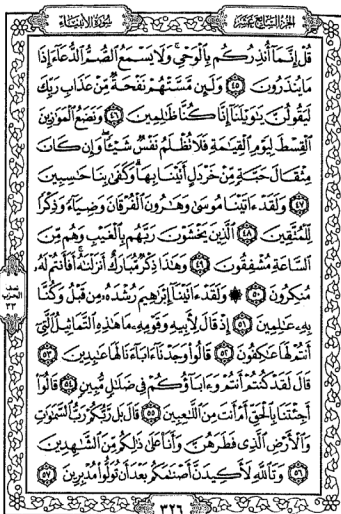 الجزء السابع عشر
سورة الأنبياء
قُلْ إِنَّمَا أُنذِرُكُم بِالْوَحْيِ ۚ وَلَا يَسْمَعُ الصُّمُّ الدُّعَاءَ إِذَا
مَا يُنذَرُونَ ٤٥ وَلَئِن مَّسَّتْهُمْ نَفْحَةٌ مِّنْ عَذَابِ رَبِّكَ
لَيَقُولُنَّ يَاوَيْلَنَا إِنَّا كُنَّا ظَالِمِينَ ٤٦ وَنَضَعُ الْمَوَازِينَ
الْقِسْطَ لِيَوْمِ الْقِيَامَةِ فَلَا تُظْلَمُ نَفْسٌ شَيْئًا ۖ وَإِن كَانَ
مِثْقَالَ حَبَّةٍ مِّنْ خَرْدَلٍ أَتَيْنَا بِهَا ۗ وَكَفَىٰ بِنَا حَاسِبِينَ
٤٧ وَلَقَدْ آتَيْنَا مُوسَىٰ وَهَارُونَ الْفُرْقَانَ وَضِيَاءً وَذِكْرًا
لِّلْمُتَّقِينَ ٤٨ الَّذِينَ يَخْشَوْنَ رَبَّهُم بِالْغَيْبِ وَهُم مِّنَ
السَّاعَةِ مُشْفِقُونَ ٤٩ وَهَٰذَا ذِكْرٌ مُّبَارَكٌ أَنزَلْنَاهُ ۚ أَفَأَنتُمْ لَهُ
مُنكِرُونَ ٥٠ ۞ وَلَقَدْ آتَيْنَا إِبْرَاهِيمَ رُشْدَهُ مِن قَبْلُ وَكُنَّا
بِهِ عَالِمِينَ ٥١ إِذْ قَالَ لِأَبِيهِ وَقَوْمِهِ مَا هَٰذِهِ التَّمَاثِيلُ الَّتِي
أَنتُمْ لَهَا عَاكِفُونَ ٥٢ قَالُوا وَجَدْنَا آبَاءَنَا لَهَا عَابِدِينَ ٥٣
قَالَ لَقَدْ كُنتُمْ أَنتُمْ وَآبَاؤُكُمْ فِي ضَلَالٍ مُّبِينٍ ٥٤ قَالُوا
أَجِئْتَنَا بِالْحَقِّ أَمْ أَنتَ مِنَ اللَّاعِبِينَ ٥٥ قَالَ بَل رَّبُّكُمْ رَبُّ السَّمَاوَاتِ
وَالْأَرْضِ الَّذِي فَطَرَهُنَّ وَأَنَا عَلَىٰ ذَٰلِكُم مِّنَ الشَّاهِدِينَ
٥٦ وَتَاللَّهِ لَأَكِيدَنَّ أَصْنَامَكُم بَعْدَ أَن تُوَلُّوا مُدْبِرِينَ ٥٧
نصف
الحزب
٣٣
٣٢٦